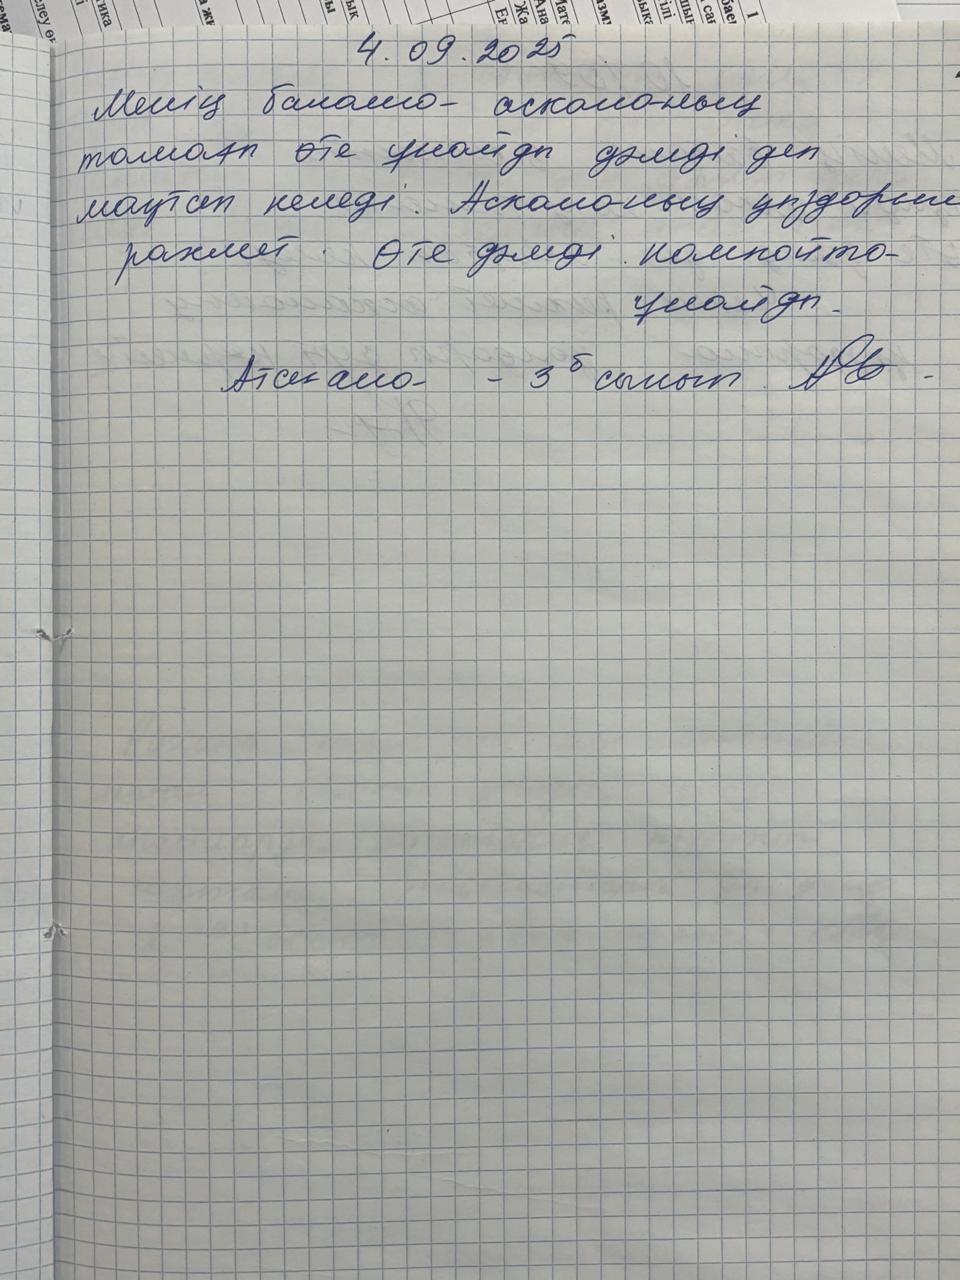 4.09.2025
Менің балама асхананың
тамағы өте ұнайды дәмді деп
мақтап келеді. Асхананың
рахмет. Өте дәмді компотта
ұнайды.
- 3 б сынып